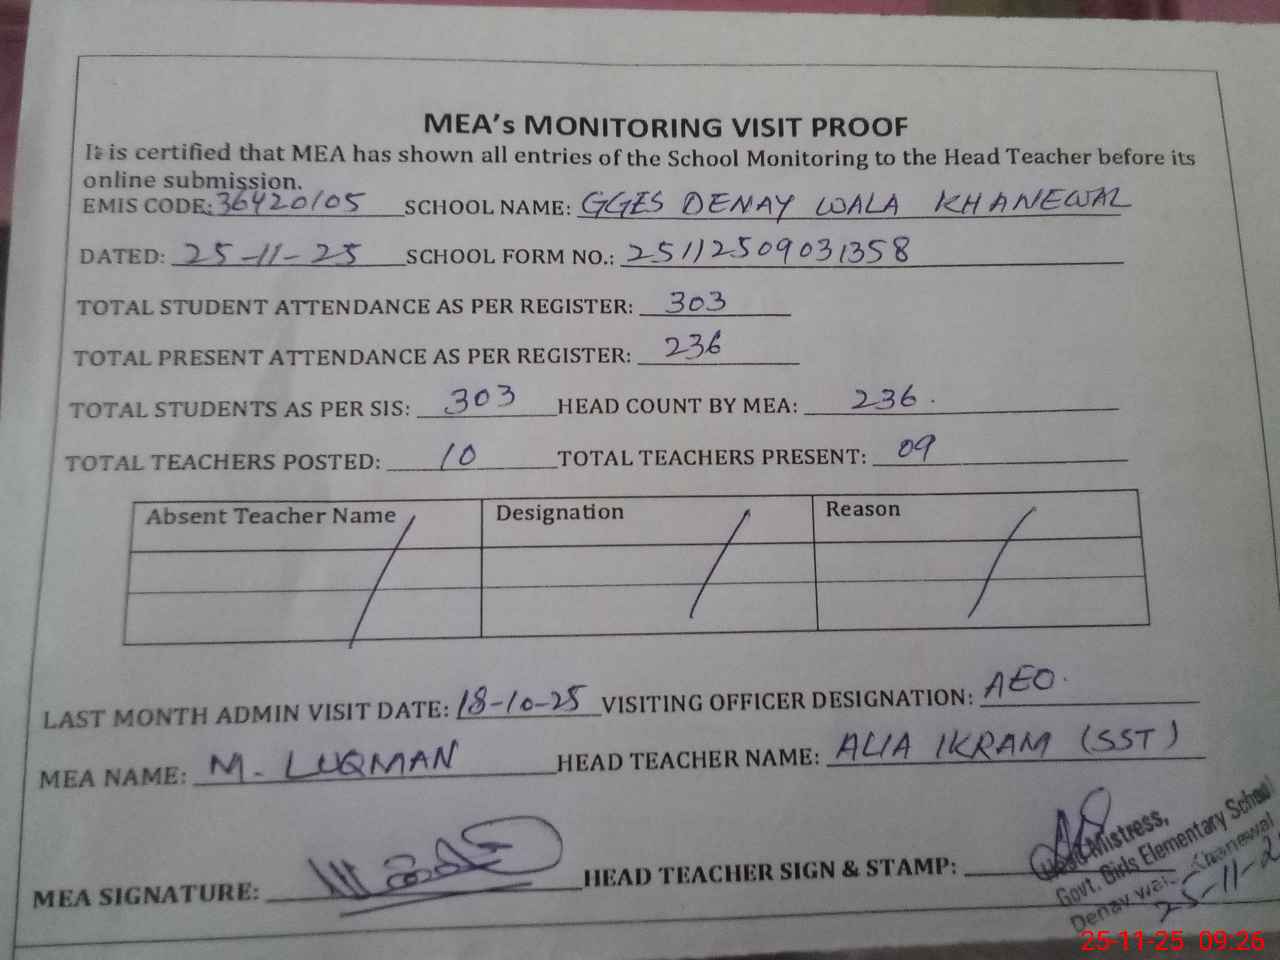 MEA's MONITORING VISIT PROOF
It is certified that MEA has shown all entries of the School Monitoring to the Head Teacher before its
online submission.
EMIS CODE: 36420105 SCHOOL NAME: GGES DENAY WALA KHANEWAL
DATED: 25-11-25 SCHOOL FORM NO.: 25112509031358
TOTAL STUDENT ATTENDANCE AS PER REGISTER: 303
TOTAL PRESENT ATTENDANCE AS PER REGISTER: 236
TOTAL STUDENTS AS PER SIS: 303 HEAD COUNT BY MEA: 236.
TOTAL TEACHERS POSTED: 10 TOTAL TEACHERS PRESENT: 09
Absent Teacher Name Designation Reason
LAST MONTH ADMIN VISIT DATE: 18-10-25 VISITING OFFICER DESIGNATION: AEO.
MEA NAME: M. LUQMAN HEAD TEACHER NAME: ALIA IKRAM (SST)
MEA SIGNATURE: HEAD TEACHER SIGN & STAMP:
Head Mistress,
Govt. Girls Elementary School
Denay Wala Khanewal
25-11-2
25-11-25 09:26